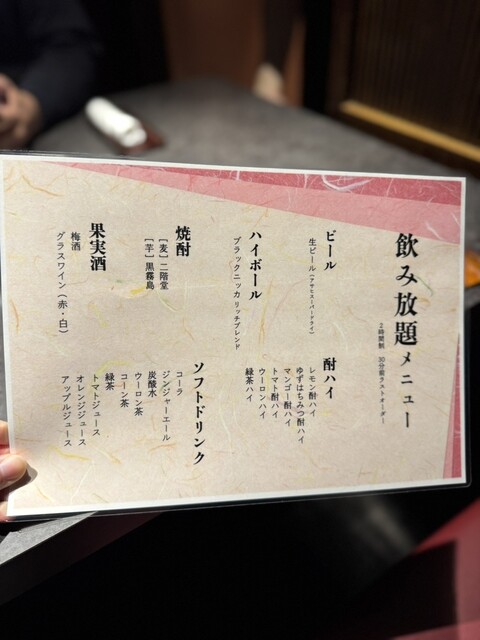 飲み放題メニュー
2時間制 30分前ラストオーダー
ビール
生ビール（アサヒスーパードライ）
酎ハイ
レモン酎ハイ
ゆずはちみつ酎ハイ
マンゴー酎ハイ
トマト酎ハイ
ウーロンハイ
緑茶ハイ
ハイボール
ブラックニッカ リッチブレンド
焼酎
［麦］二階堂
［芋］黒霧島
ソフトドリンク
コーラ
ジンジャーエール
炭酸水
ウーロン茶
コーン茶
緑茶
トマトジュース
オレンジジュース
アップルジュース
果実酒
梅酒
グラスワイン（赤・白）